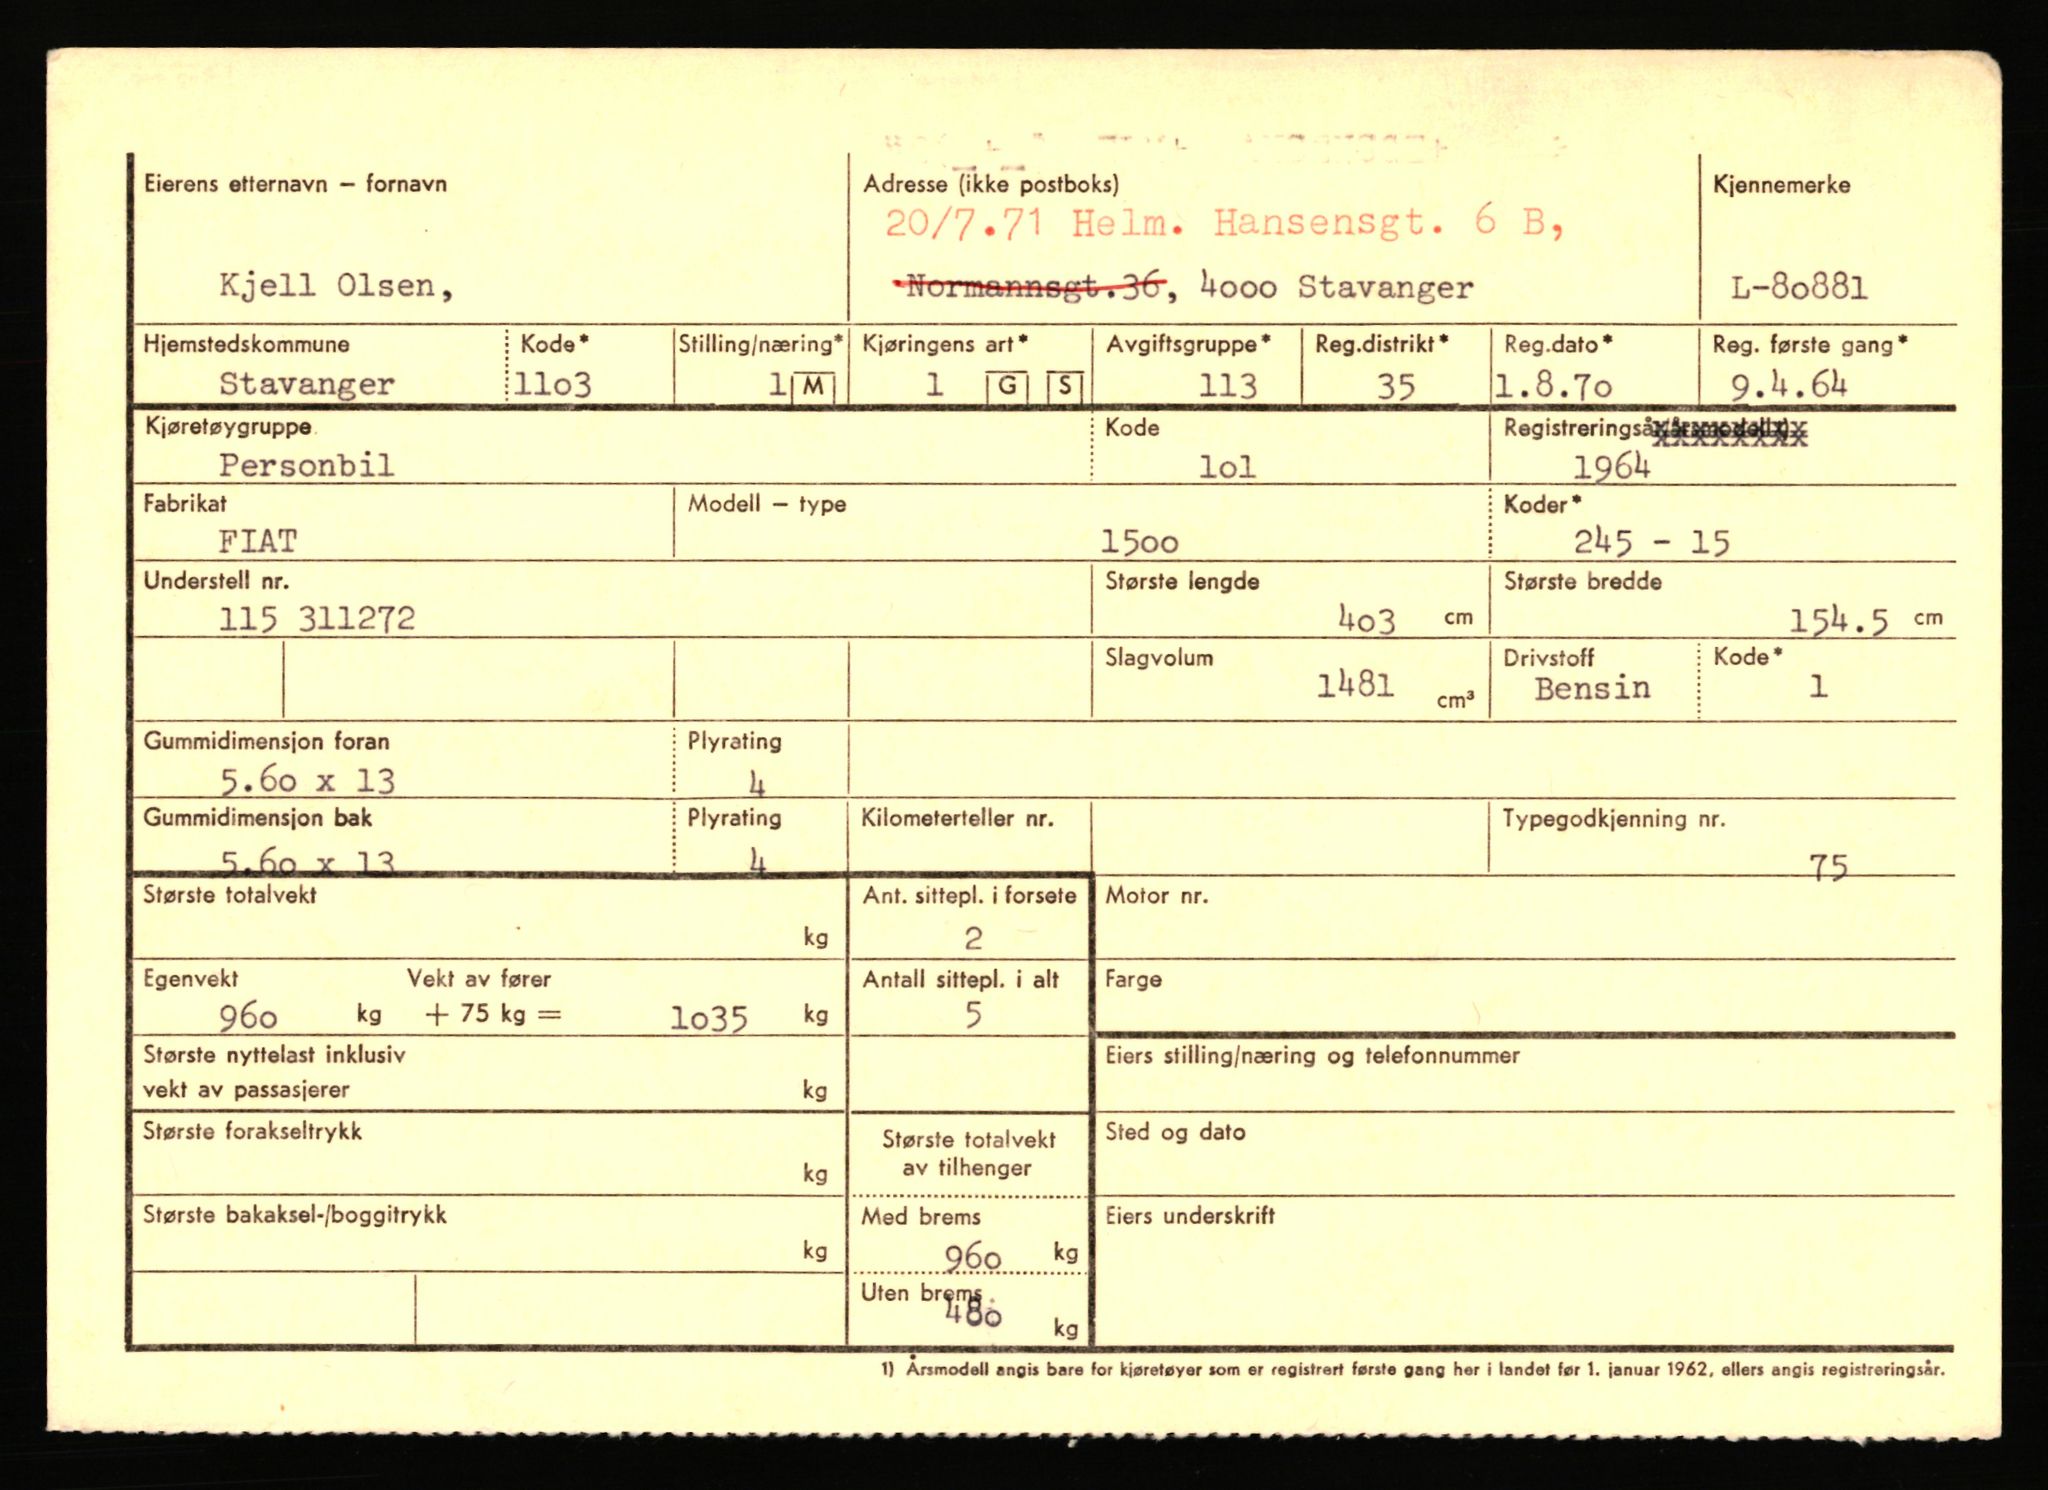 Eierens etternavn – fornavn Adresse (ikke postboks) Kjennemerke
20/7.71 Helm. Hansensgt. 6 B,
Kjell Olsen, Normannsgt.36, 4000 Stavanger L-80881
Hjemstedskommune Kode* Stilling/næring* Kjøringens art* Avgiftsgruppe* Reg.distrikt* Reg.dato* Reg. første gang*
Stavanger 1103 1 M 1 G S 113 35 1.8.70 9.4.64
Kjøretøygruppe Kode Registreringsår/årsmodell1)
Personbil 101 1964
Fabrikat Modell – type Koder*
FIAT 1500 245 - 15
Understell nr. Største lengde Største bredde
115 311272 403 cm 154.5 cm
Slagvolum Drivstoff Kode*
1481 cm³ Bensin 1
Gummidimensjon foran Plyrating
5.60 x 13 4
Gummidimensjon bak Plyrating Kilometerteller nr. Typegodkjenning nr.
5.60 x 13 4 75
Største totalvekt Ant. sittepl. i forsete Motor nr.
kg 2
Egenvekt Vekt av fører Antall sittepl. i alt Farge
960 kg + 75 kg = 1035 kg 5
Største nyttelast inklusiv Eiers stilling/næring og telefonnummer
vekt av passasjerer kg
Største forakseltrykk Største totalvekt Sted og dato
av tilhenger
kg
Største bakaksel-/boggitrykk Med brems Eiers underskrift
kg 960 kg
Uten brems
480
kg
1) Årsmodell angis bare for kjøretøyer som er registrert første gang her i landet før 1. januar 1962, ellers angis registreringsår.